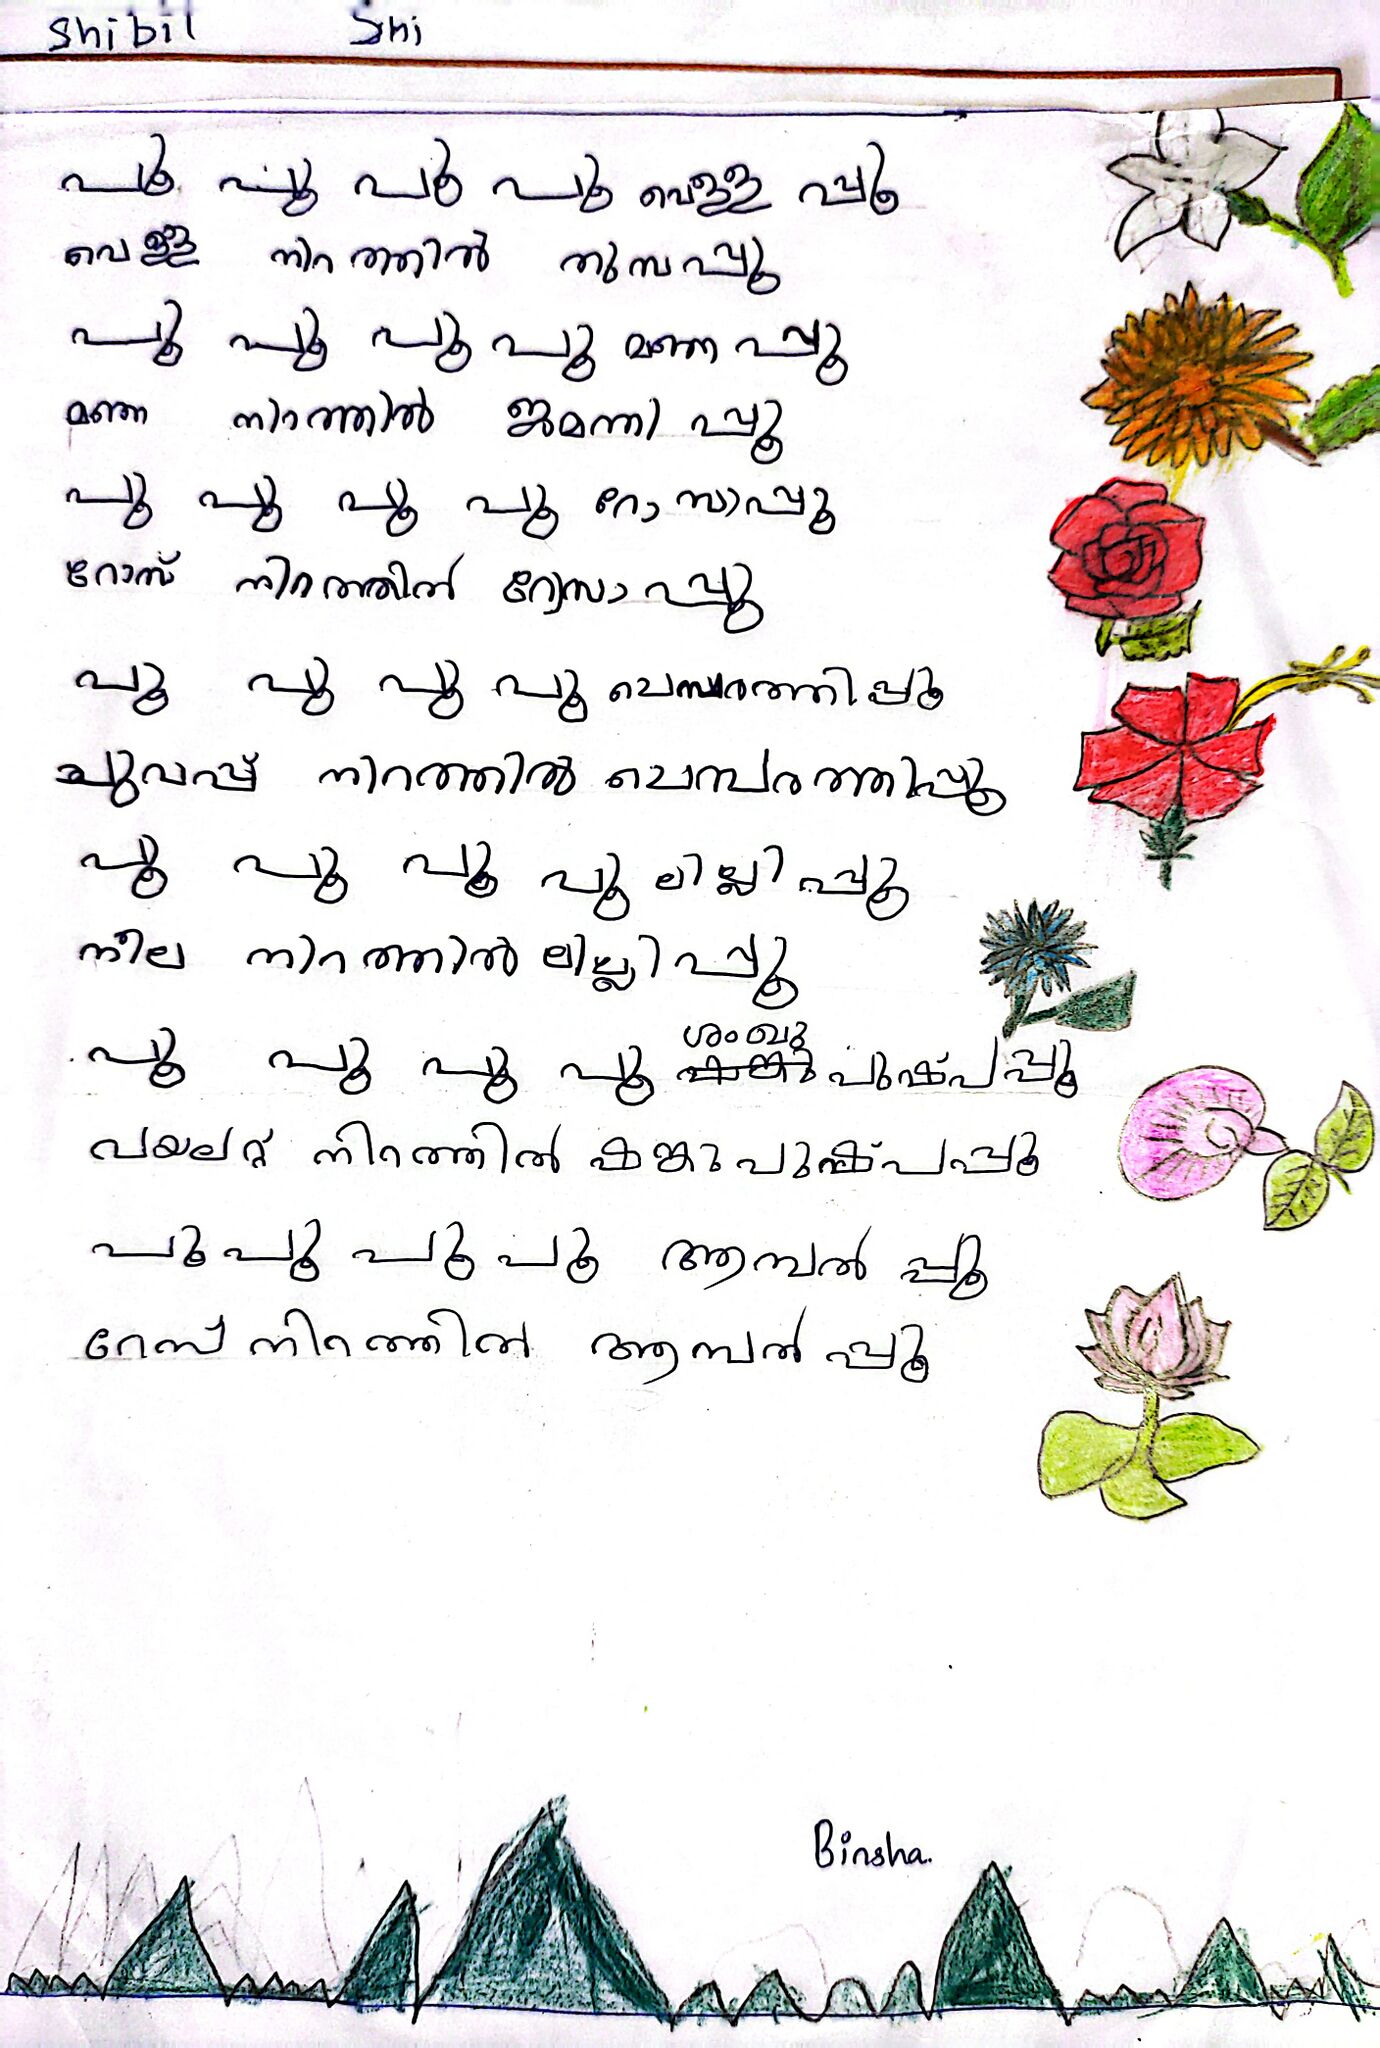 Shibil Shi
പൂ പൂ പൂ പൂ വെള്ള പ്പൂ
വെള്ള നിറത്തിൽ തുമ്പപ്പൂ
പൂ പൂ പൂ പൂ മഞ്ഞ പ്പൂ
മഞ്ഞ നിറത്തിൽ ജമന്തി പ്പൂ
പൂ പൂ പൂ പൂ റോസാപ്പൂ
റോസ് നിറത്തിൽ റോസാ പ്പൂ
പൂ പൂ പൂ പൂ ചെമ്പരത്തിപ്പൂ
ചുവപ്പ് നിറത്തിൽ ചെമ്പരത്തിപ്പൂ
പൂ പൂ പൂ പൂ ലില്ലി പ്പൂ
നീല നിറത്തിൽ ലില്ലി പ്പൂ
പൂ പൂ പൂ പൂ ശംഖു പുഷ്പപ്പൂ
വയലറ്റ് നിറത്തിൽ ഷങ്കു പുഷ്പപ്പൂ
പൂ പൂ പൂ പൂ ആമ്പൽ പ്പൂ
റേസ് നിറത്തിൽ ആമ്പൽ പ്പൂ
Binsha.